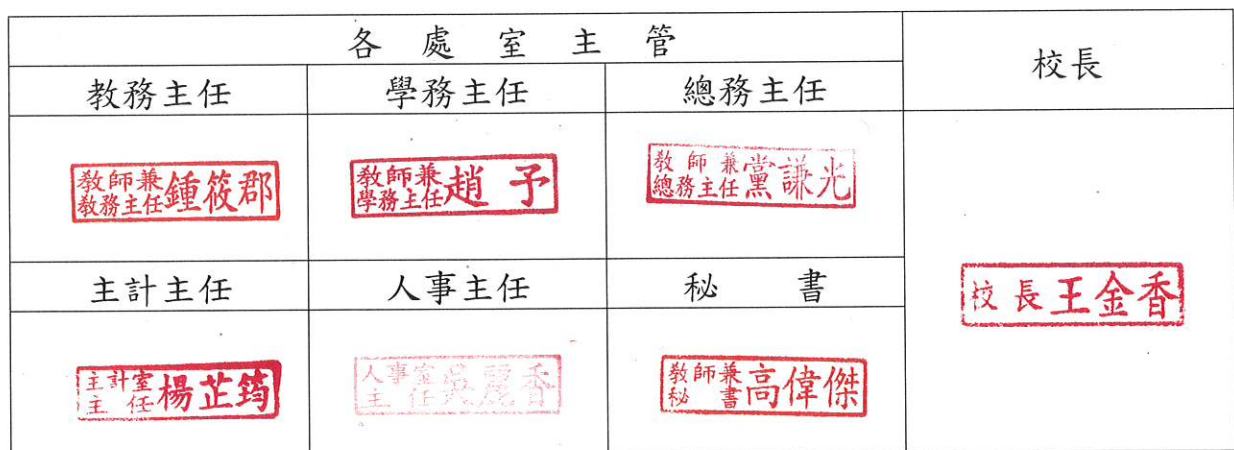 各處室主管
校長
教務主任 學務主任 總務主任
教師兼
教務主任鍾筱郡
教師兼
學務主任趙予
教師兼
總務主任黨謙光
主計主任 人事主任 秘書
校長王金香
主計室
主任楊芷筠
人事室
主任吳麗香
教師兼
秘書高偉傑